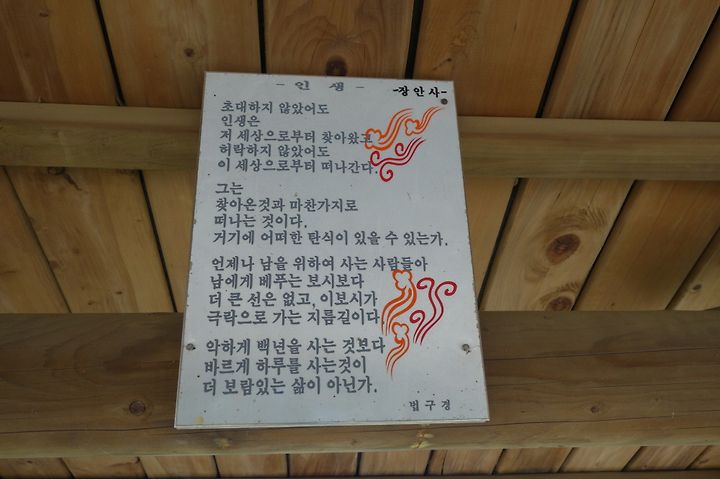 - 인 생 -
-장안사-
초대하지 않았어도
인생은
저 세상으로부터 찾아왔고
허락하지 않았어도
이 세상으로부터 떠나간다.
그는
찾아온것과 마찬가지로
떠나는 것이다.
거기에 어떠한 탄식이 있을 수 있는가.
언제나 남을 위하여 사는 사람들아
남에게 베푸는 보시보다
더 큰 선은 없고, 이보시가
극락으로 가는 지름길이다
악하게 백년을 사는 것보다
바르게 하루를 사는것이
더 보람있는 삶이 아닌가.
법구경